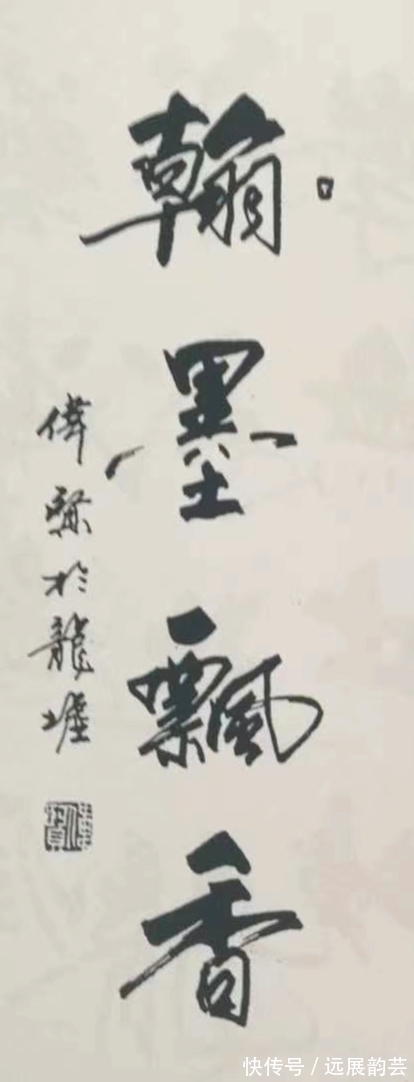 翰墨飄香
偉賢於龍墟
快传号 / 远展韵芸